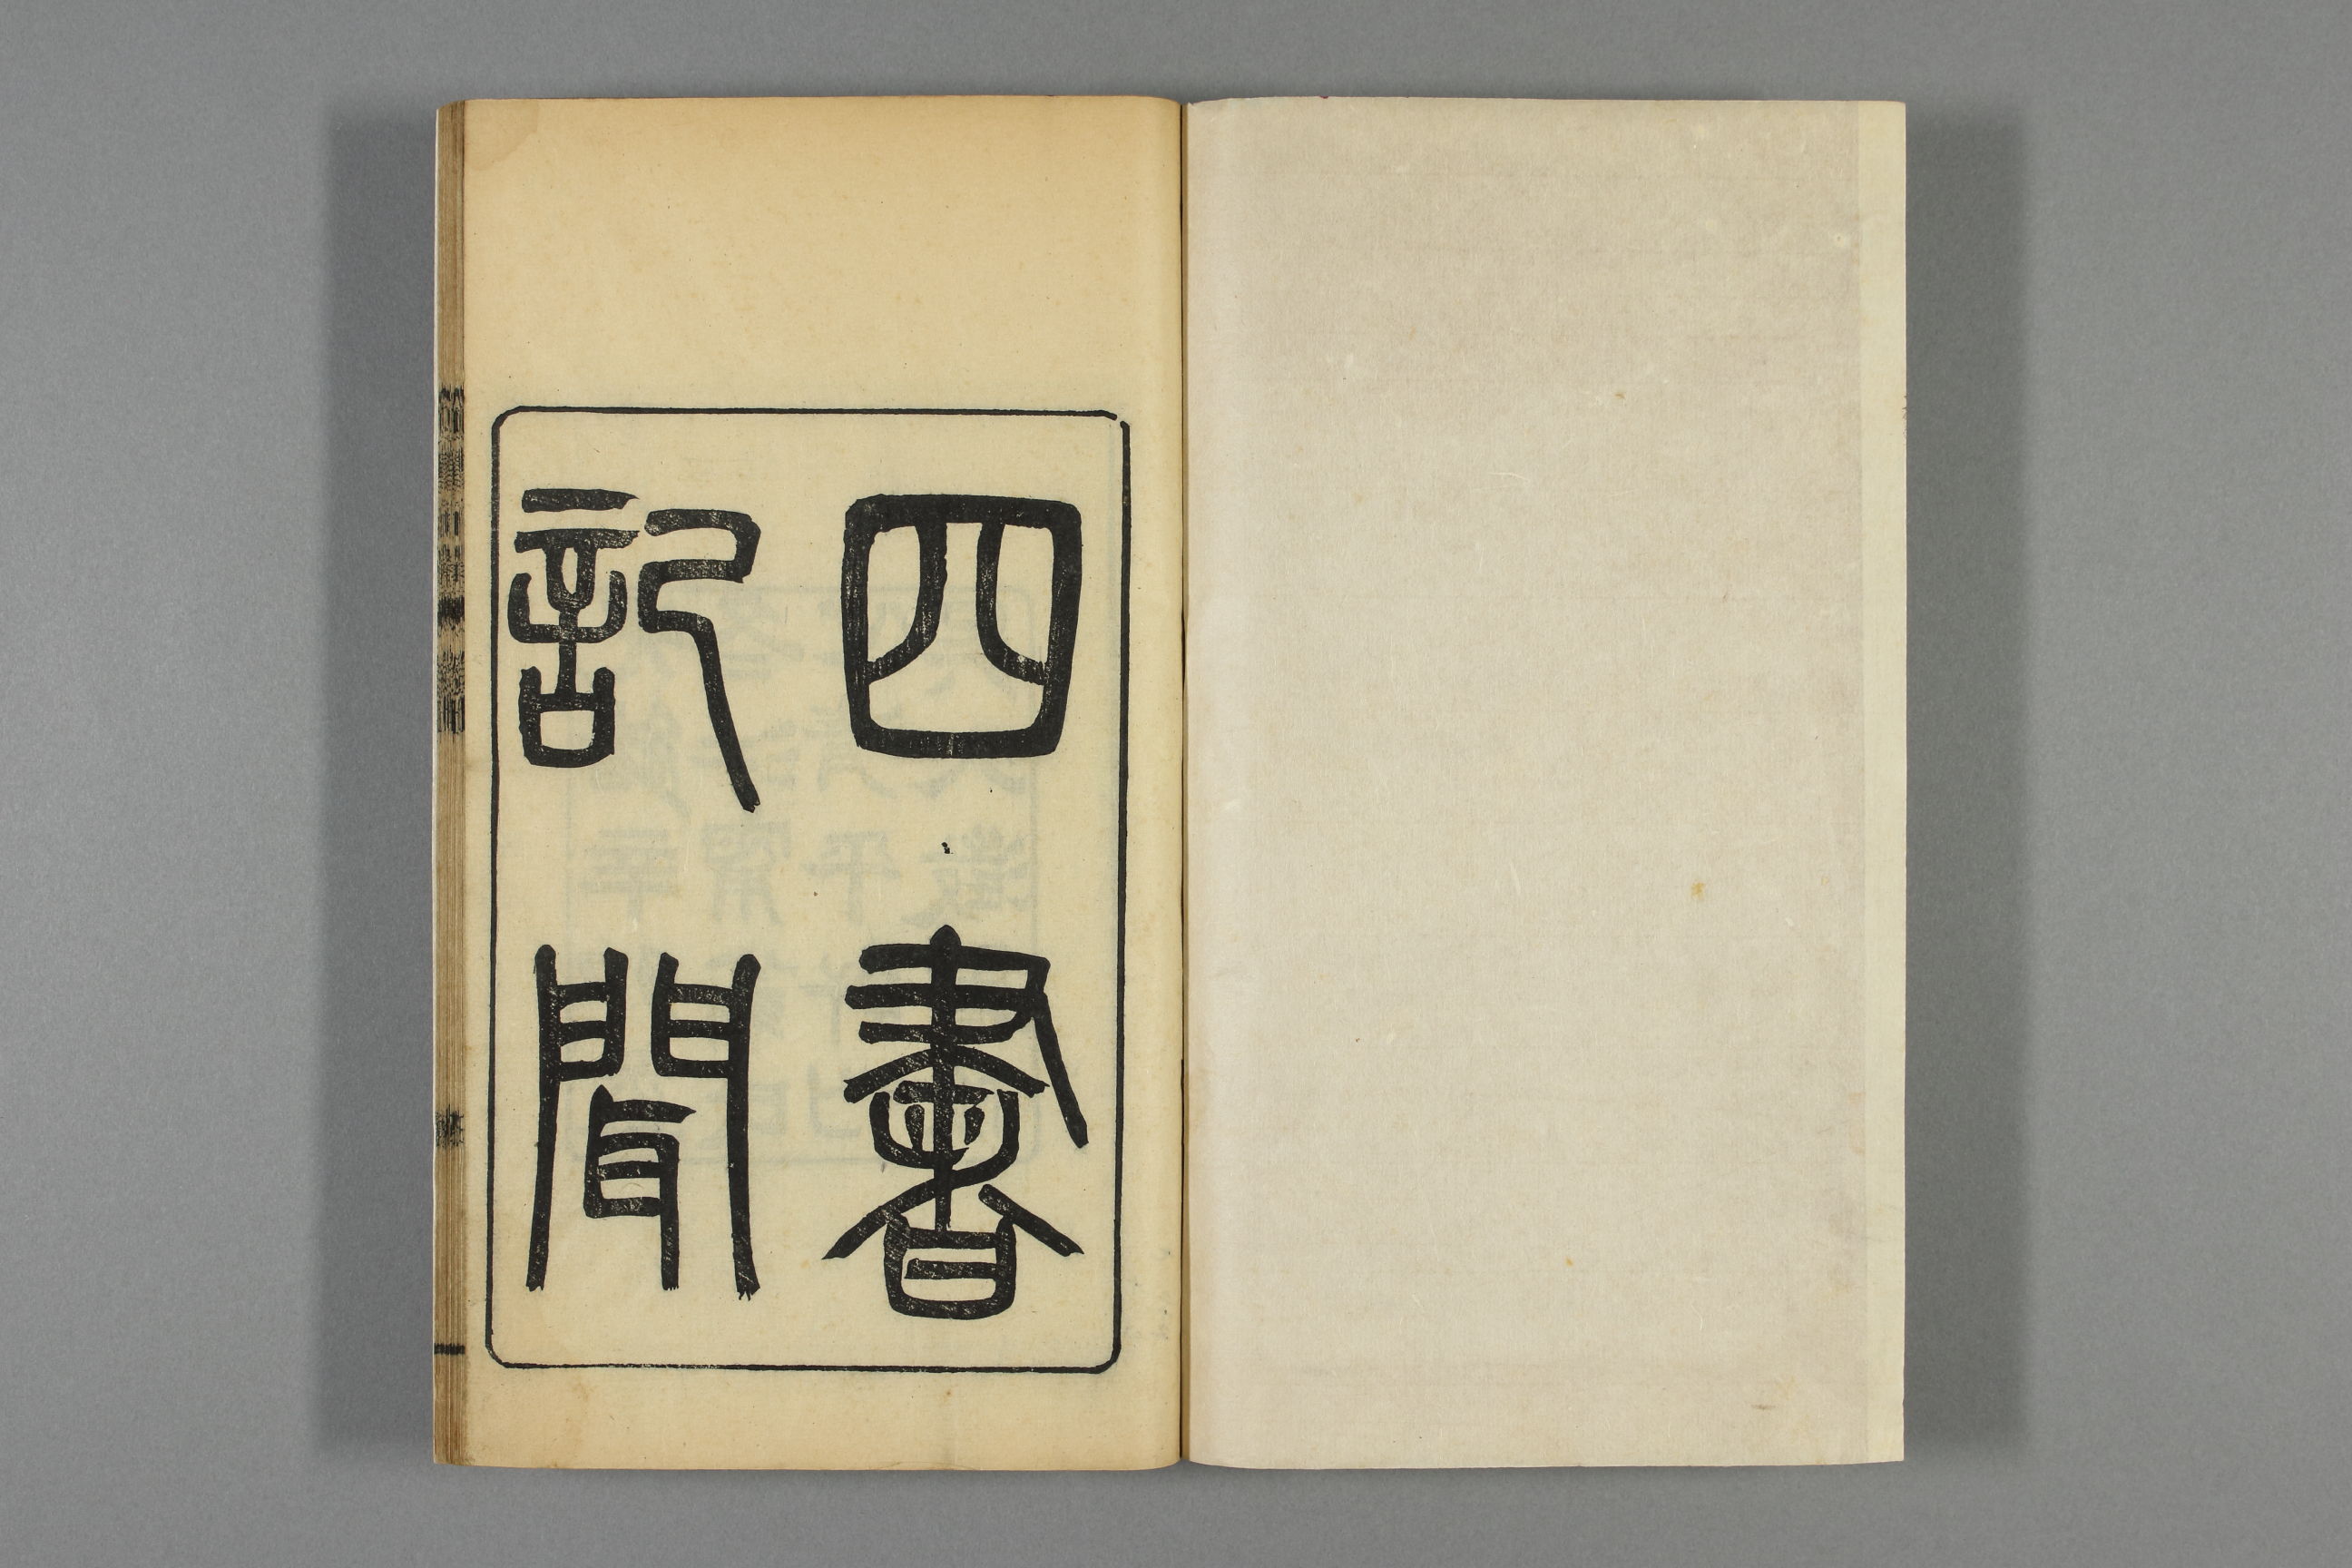 四書
記聞